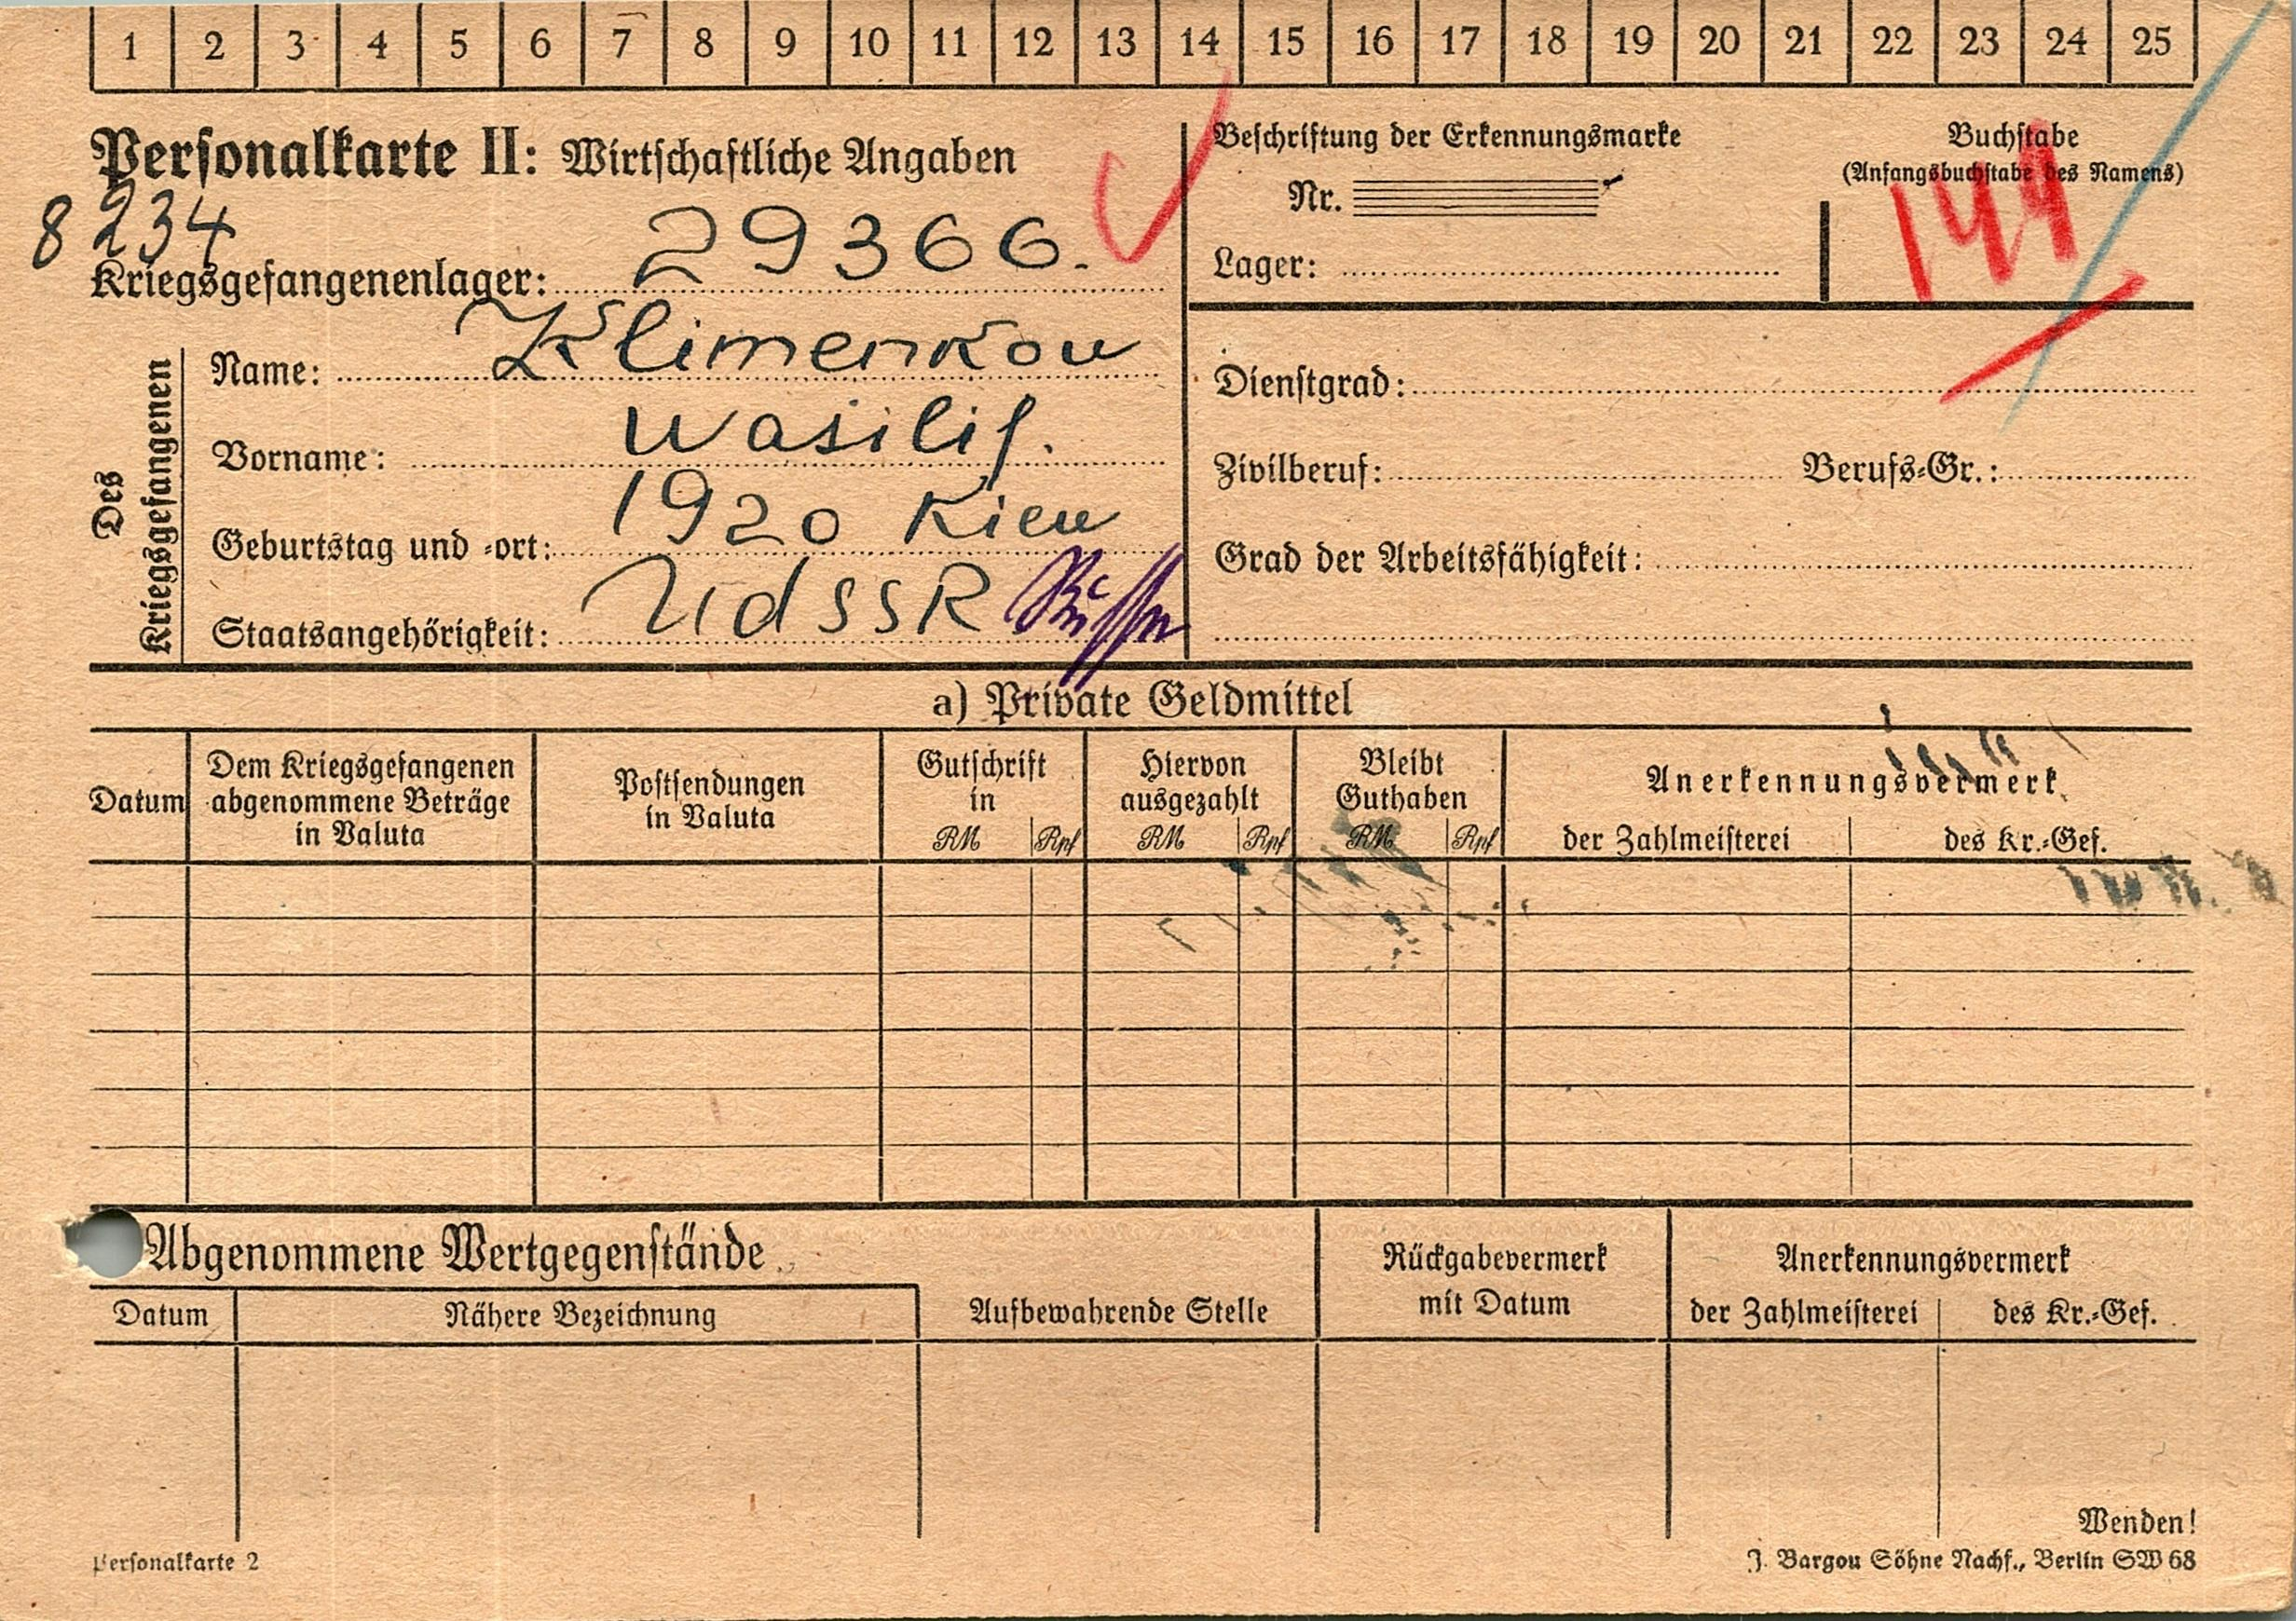 1 2 3 4 5 6 7 8 9 10 11 12 13 14 15 16 17 18 19 20 21 22 23 24 25
Personalkarte II: Wirtschaftliche Angaben
8234
Kriegsgefangenenlager: 29366.
Des Kriegsgefangenen
Name: Klimenkow
Vorname: Wasilij.
Geburtstag und -ort: 1920 Kiew
Staatsangehörigkeit: UdSSR
Beschriftung der Erkennungsmarke
Nr.
Lager:
Buchstabe
(Anfangsbuchstabe des Namens)
Dienstgrad:
Zivilberuf: Berufs-Gr.:
Grad der Arbeitsfähigkeit:
a) Private Geldmittel
Datum
Dem Kriegsgefangenen
abgenommene Beträge
in Valuta
Postsendungen
in Valuta
Gutschrift
in
RM Rpf
Hiervon
ausgezahlt
RM Rpf
Bleibt
Guthaben
RM Rpf
Anerkennungsvermerk
der Zahlmeisterei des Kr.-Gef.
Abgenommene Wertgegenstände
Datum Nähere Bezeichnung
Aufbewahrende Stelle
Rückgabevermerk
mit Datum
Anerkennungsvermerk
der Zahlmeisterei des Kr.-Gef.
Wenden!
Personalkarte 2
J. Bargou Söhne Nachf., Berlin SW 68